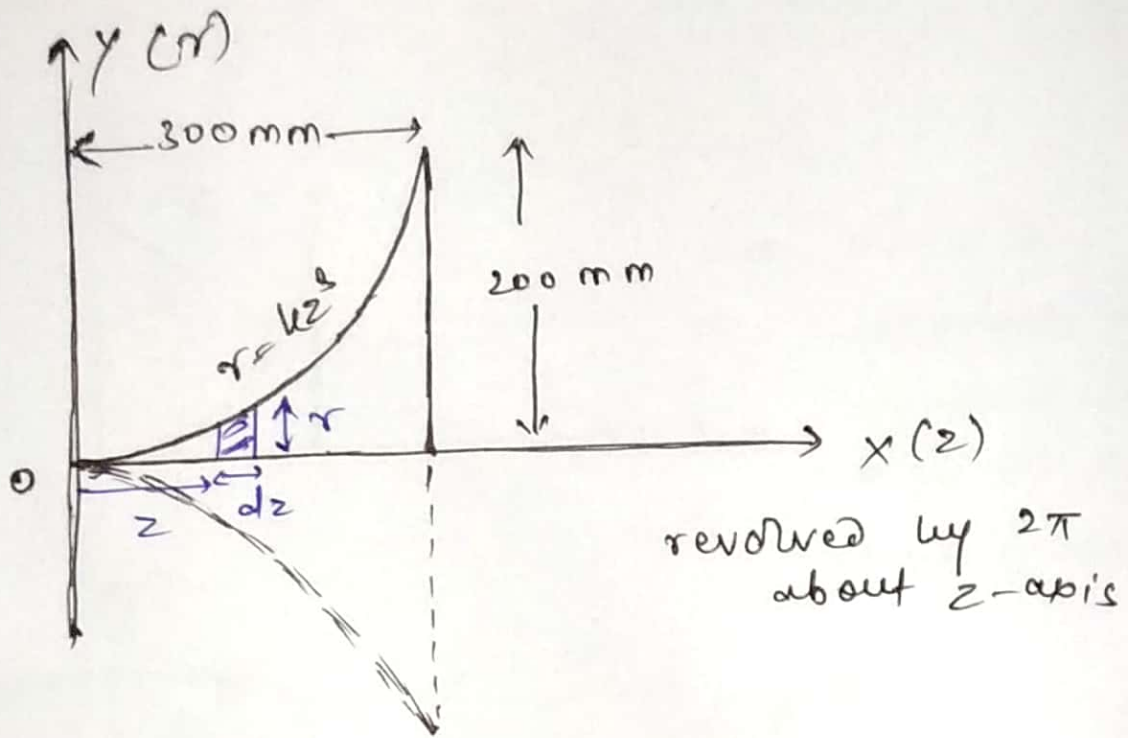 y (r)
300 mm
200 mm
r = kz³
r
x (z)
0
z
dz
revolved by 2π
about z-axis